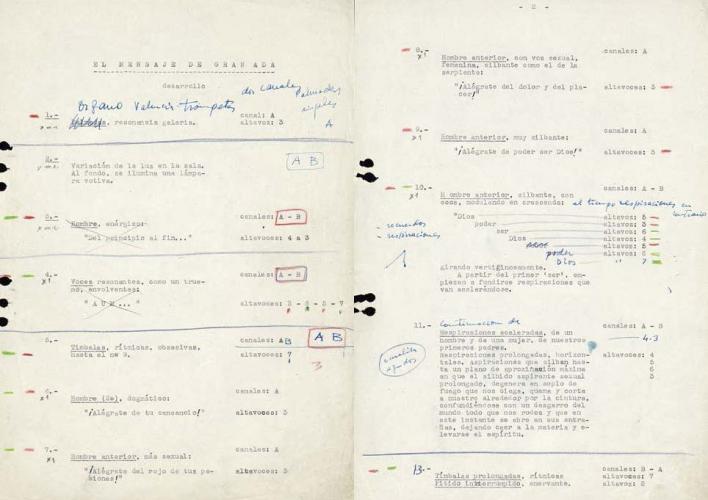 EL MENSAJE DE GRANADA
desarrollo
dos canales
Organo Valencia trompetas
1.- resonancia galeria.
canal: A
altavoz: 3
A
2.-
A B
Variación de la luz en la sala.
Al fondo, se ilumina una lámpa-
ra votiva.
3.-
canales: A - B
Hombre, enérgico:
"Del principio al fin..."
altavoces: 4 a 3
4.-
canales: A - B
x1
Voces resonantes, como un true-
no, envolventes:
"A U M..."
altavoces: 3 - 6 - 5 - 7
5.-
canales: AB
A B
Timbalas, rítmicas, obsesivas,
hasta el nº 9.
altavoces: 7
3
6.-
canales: A
x1
Hombre (De), dogmático:
"¡Alégrate de tu cansancio!"
altavoces: 3
7.-
canales: A
x1
Hombre anterior, más sexual:
"¡Alégrate del rojo de tus pe-
siones!"
altavoces: 3
- 2 -
8.-
canales: A
x1
Hombre anterior, con voz sexual,
femenina, silbante como el de la
serpiente:
"¡Alégrate del dolor y del pla-
cer!"
altavoces: 3
9.-
canales: A
x1
Hombre anterior, muy silbante:
"¡Alégrate de poder ser Dios!"
altavoces: 3
10.-
canales: A - B
x1
H ombre anterior, silbante, con
ecos, modulando en crescendo:
al tiempo respiraciones en
"Dios
altavoz: 5
poder
altavoz: 3
ser
altavoz: 6
Dios
altavoz: 4
poder
Dios
"
7
- recuerdos
- respiraciones
Girando vertiginosamente.
A partir del primer 'ser', em-
piezan a fundirse respiraciones que
van acelerándose.
11.-
Continuacion de
canales: A - B
Respiraciones aceleradas, de un
hombre y de una mujer, de nuestros
primeros padres.
4.3
Respiraciones prolongadas, horizon-
tales, aspiraciones que silban has-
ta un plano de aproximación máxima
en que el silbido aspirante sexual
prolongado, degenera en soplo de
fuego que nos ciega, quema y corta
a nuestro alrededor por la cintura,
confundiéndose con un desgarro del
mundo todo que nos rodea y que en
este instante se abre en sus entra-
ñas, dejando caer a la materia y e-
levarse el espíritu.
altavoces: 4
5
6
3
13.-
canales: B - A
Timbalas prolongadas, rítmicas
altavoces: 7
Pitido interrumpido, enervante.
altavoz: 8